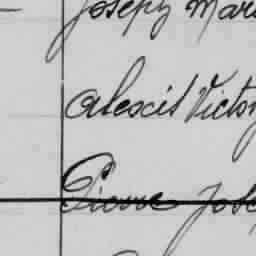 Joseph Mar
Alexis Victor
Pierre Jose